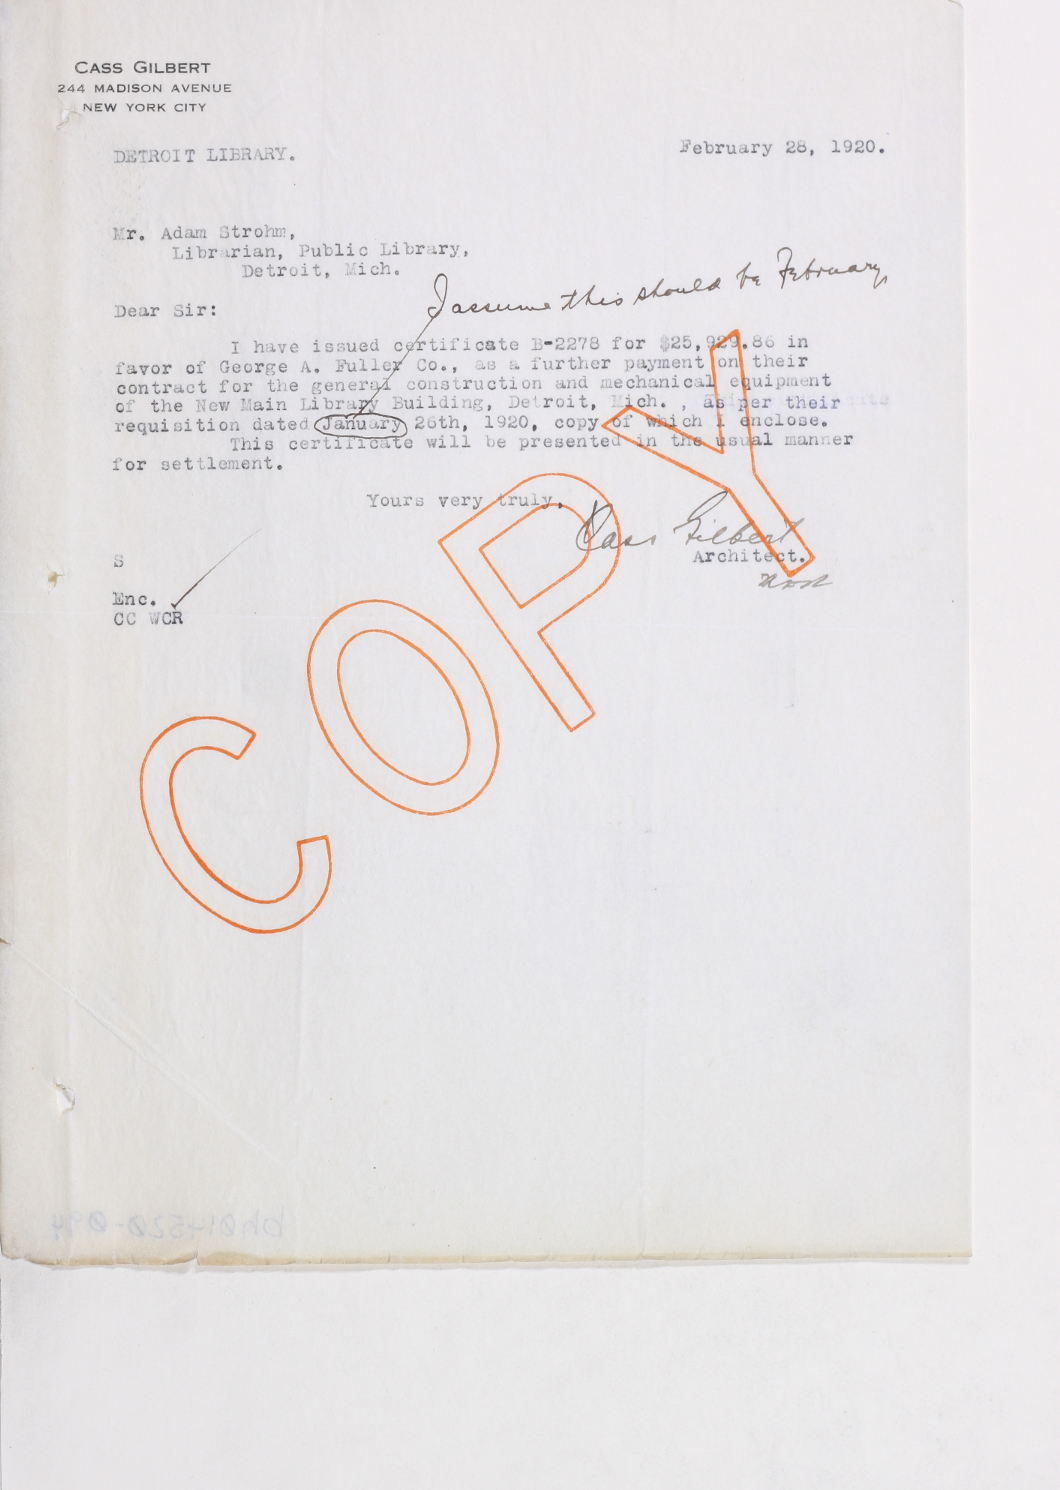 CASS GILBERT
244 MADISON AVENUE
NEW YORK CITY
DETROIT LIBRARY.
February 28, 1920.
Mr. Adam Strohm,
Librarian, Public Library,
Detroit, Mich.
I assume this should be February
Dear Sir:
I have issued certificate B-2278 for $25,929.86 in
favor of George A. Fuller Co., as a further payment on their
contract for the general construction and mechanical equipment
of the New Main Library Building, Detroit, Mich. , as per their
requisition dated January 26th, 1920, copy of which I enclose.
This certificate will be presented in the usual manner
for settlement.
Yours very truly,
Cass Gilbert
Architect.
S
Enc.
CC WCR
COPY
bh014520-094